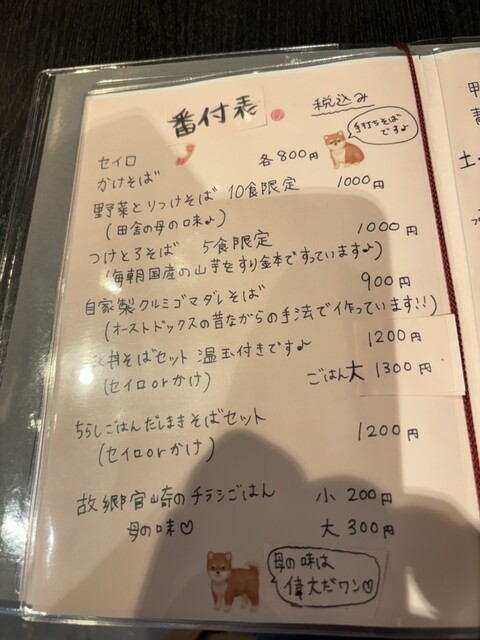 番付表 税込み
手打ちそば
ですよ
セイロ 各800円
かけそば
野菜とりつけそば 10食限定 1000円
(田舎の母の味♪)
つけとろそば 5食限定 1000円
(毎朝国産の山芋をすり金本ですっています♪)
自家製クルミゴマダレそば 900円
(オーストドックスの昔ながらの手法で作っています!!)
丼そばセット 温玉付きです♪ 1200円
(セイロorかけ) ごはん大 1300円
ちらしごはんだしまきそばセット
(セイロorかけ) 1200円
故郷宮崎のチラシごはん 小 200円
母の味♡ 大 300円
母の味は
偉大だワン♡